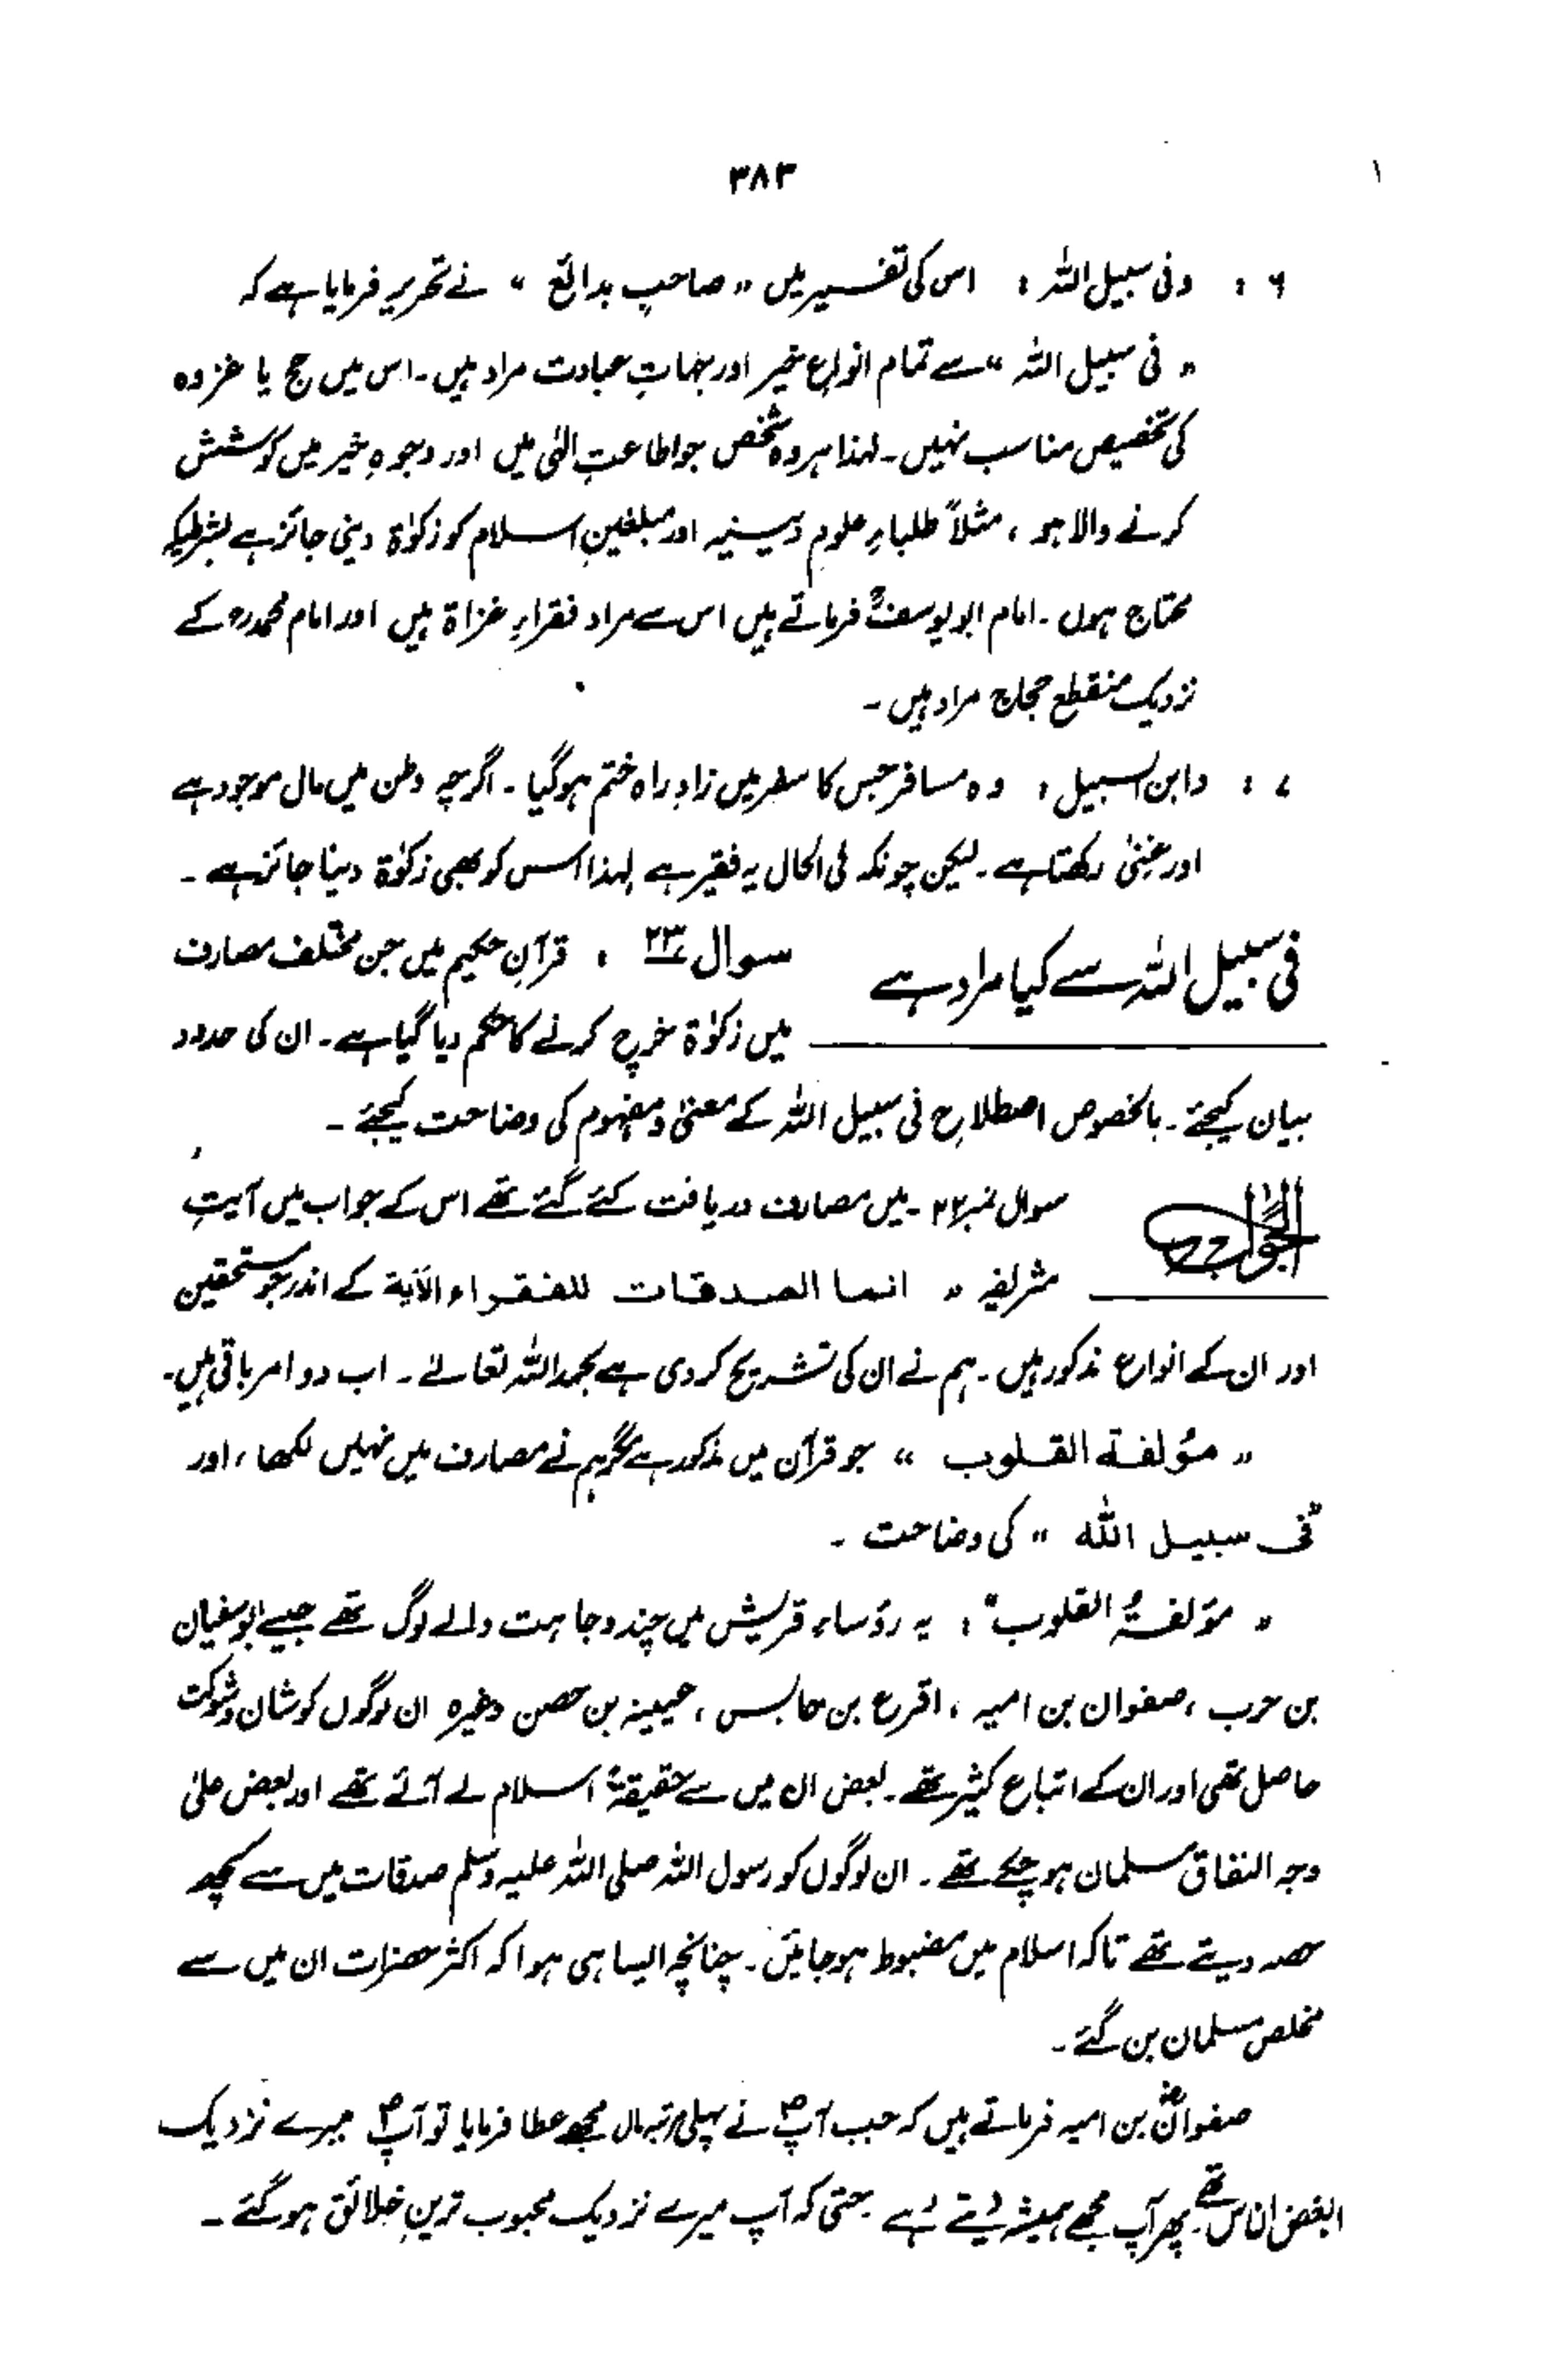 ۳۸۳
۶ : وفی سبیل اللہ : اس کی تفسیر میں " صاحبِ بدائع " نے تحریر فرمایا ہے کہ
" فی سبیل اللہ " سے تمام انواعِ خیر اور جہاتِ عبادت مراد ہیں ۔ اس میں حج یا غزوہ
کی تخصیص مناسب نہیں ۔ لہٰذا ہر وہ شخص جو اطاعتِ الٰہی میں اور وجوہِ خیر میں کوشش
کرنے والا ہو ، مثلاً طلباءِ علوم دینیہ اور مبلغینِ اسلام کو زکوٰۃ دینی جائز ہے بشرطیکہ
محتاج ہوں ۔ امام ابو یوسفؒ فرماتے ہیں اس سے مراد فقراءِ غزاۃ ہیں اور امام محمدرہ کے
نزدیک منقطع حجاج مراد ہیں ۔
۷ : وابن السبیل : وہ مسافر جس کا سفر میں زادِ راہ ختم ہو گیا ۔ اگرچہ وطن میں مال موجود ہے
اور غنیٰ رکھتا ہے ۔ لیکن چونکہ فی الحال یہ فقیر ہے لہٰذا اس کو بھی زکوٰۃ دینا جائز ہے ۔
فی سبیل اللہ سے کیا مراد ہے
سوال ۲۳ : قرآنِ حکیم میں جن مختلف مصارف
میں زکوٰۃ خرچ کرنے کا حکم دیا گیا ہے ۔ ان کی حدود
بیان کیجئے ۔ بالخصوص اصطلاحِ فی سبیل اللہ کے معنیٰ و مفہوم کی وضاحت کیجئے ۔
الجواب
سوال نمبر ۲۲ میں مصارف دریافت کئے گئے تھے اس کے جواب میں آیتِ
شریفہ " انما الصدقات للفقراء الآیة کے اندر جو مستحقین
اور ان کے انواع مذکور ہیں ۔ ہم نے ان کی تشریح کر دی ہے بحمد اللہ تعالےٰ ۔ اب دو امر باقی ہیں ۔
" مؤلفة القلوب " جو قرآن میں مذکور ہے مگر ہم نے مصارف میں نہیں لکھا ، اور
" فی سبیل اللہ " کی وضاحت ۔
" مؤلفۃُ القلوب " : یہ رؤساء قریش میں چند وجاہت والے لوگ تھے جیسے ابو سفیان
بن حرب ، صفوان بن امیہ ، اقرع بن حابس ، عیینہ بن حصن وغیرہ ان لوگوں کو شان و شوکت
حاصل تھی اور ان کے اتباع کثیر تھے ۔ بعض ان میں سے حقیقۃً اسلام لے آئے تھے اور بعض علیٰ
وجہ النفاق مسلمان ہو چکے تھے ۔ ان لوگوں کو رسول اللہ صلی اللہ علیہ وسلم صدقات میں سے کچھ
حصہ دیتے تھے تاکہ اسلام میں مضبوط ہو جائیں ۔ چنانچہ ایسا ہی ہوا کہ اکثر حضرات ان میں سے
مخلص مسلمان بن گئے ۔
صفوانؓ بن امیہ فرماتے ہیں کہ جب آپؐ نے پہلی مرتبہ مال مجھے عطا فرمایا تو آپؐ میرے نزدیک
ابغض الناس تھے پھر آپ مجھے ہمیشہ دیتے رہے حتیٰ کہ آپ میرے نزدیک محبوب ترینِ خلائق ہو گئے ۔